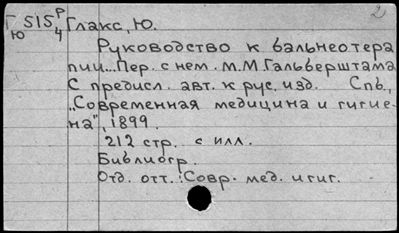 Г 515 Р Глакс, Ю. 2
Ю 4
Руководство к бальнеотера
пии... Пер. с нем. М.М.Гальберштама
С предисл. авт. к рус. изд. Спб.,
„Современная медицина и гигие-
на", 1899.
212 стр. с илл.
Библиогр.
Отд. отт.: Совр. мед. и гиг.